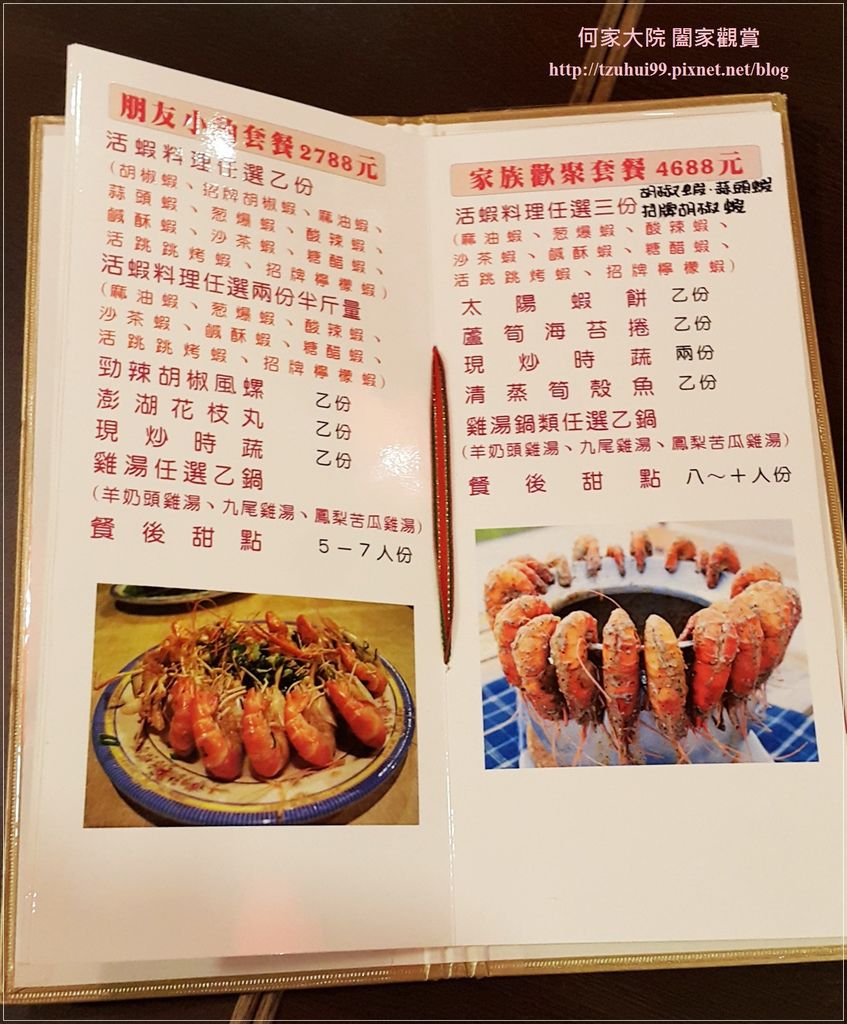 何家大院 闔家觀賞
http://tzuhui99.pixnet.net/blog
朋友小酌套餐2788元
活蝦料理任選乙份
(胡椒蝦、招牌胡椒蝦、麻油蝦、
蒜頭蝦、葱爆蝦、酸辣蝦、
鹹酥蝦、沙茶蝦、糖醋蝦、
活跳跳烤蝦、招牌檸檬蝦)
活蝦料理任選兩份半斤量
(麻油蝦、葱爆蝦、酸辣蝦、
沙茶蝦、鹹酥蝦、糖醋蝦、
活跳跳烤蝦、招牌檸檬蝦)
勁辣胡椒風螺 乙份
澎湖花枝丸 乙份
現炒時蔬 乙份
雞湯任選乙鍋
(羊奶頭雞湯、九尾雞湯、鳳梨苦瓜雞湯)
餐後甜點 5－7人份
家族歡聚套餐 4688元
活蝦料理任選三份 胡椒蝦·蒜頭蝦
招牌胡椒蝦
(麻油蝦、葱爆蝦、酸辣蝦、
沙茶蝦、鹹酥蝦、糖醋蝦、
活跳跳烤蝦、招牌檸檬蝦)
太陽蝦餅 乙份
蘆筍海苔捲 乙份
現炒時蔬 兩份
清蒸筍殼魚 乙份
雞湯鍋類任選乙鍋
(羊奶頭雞湯、九尾雞湯、鳳梨苦瓜雞湯)
餐後甜點 八～十人份